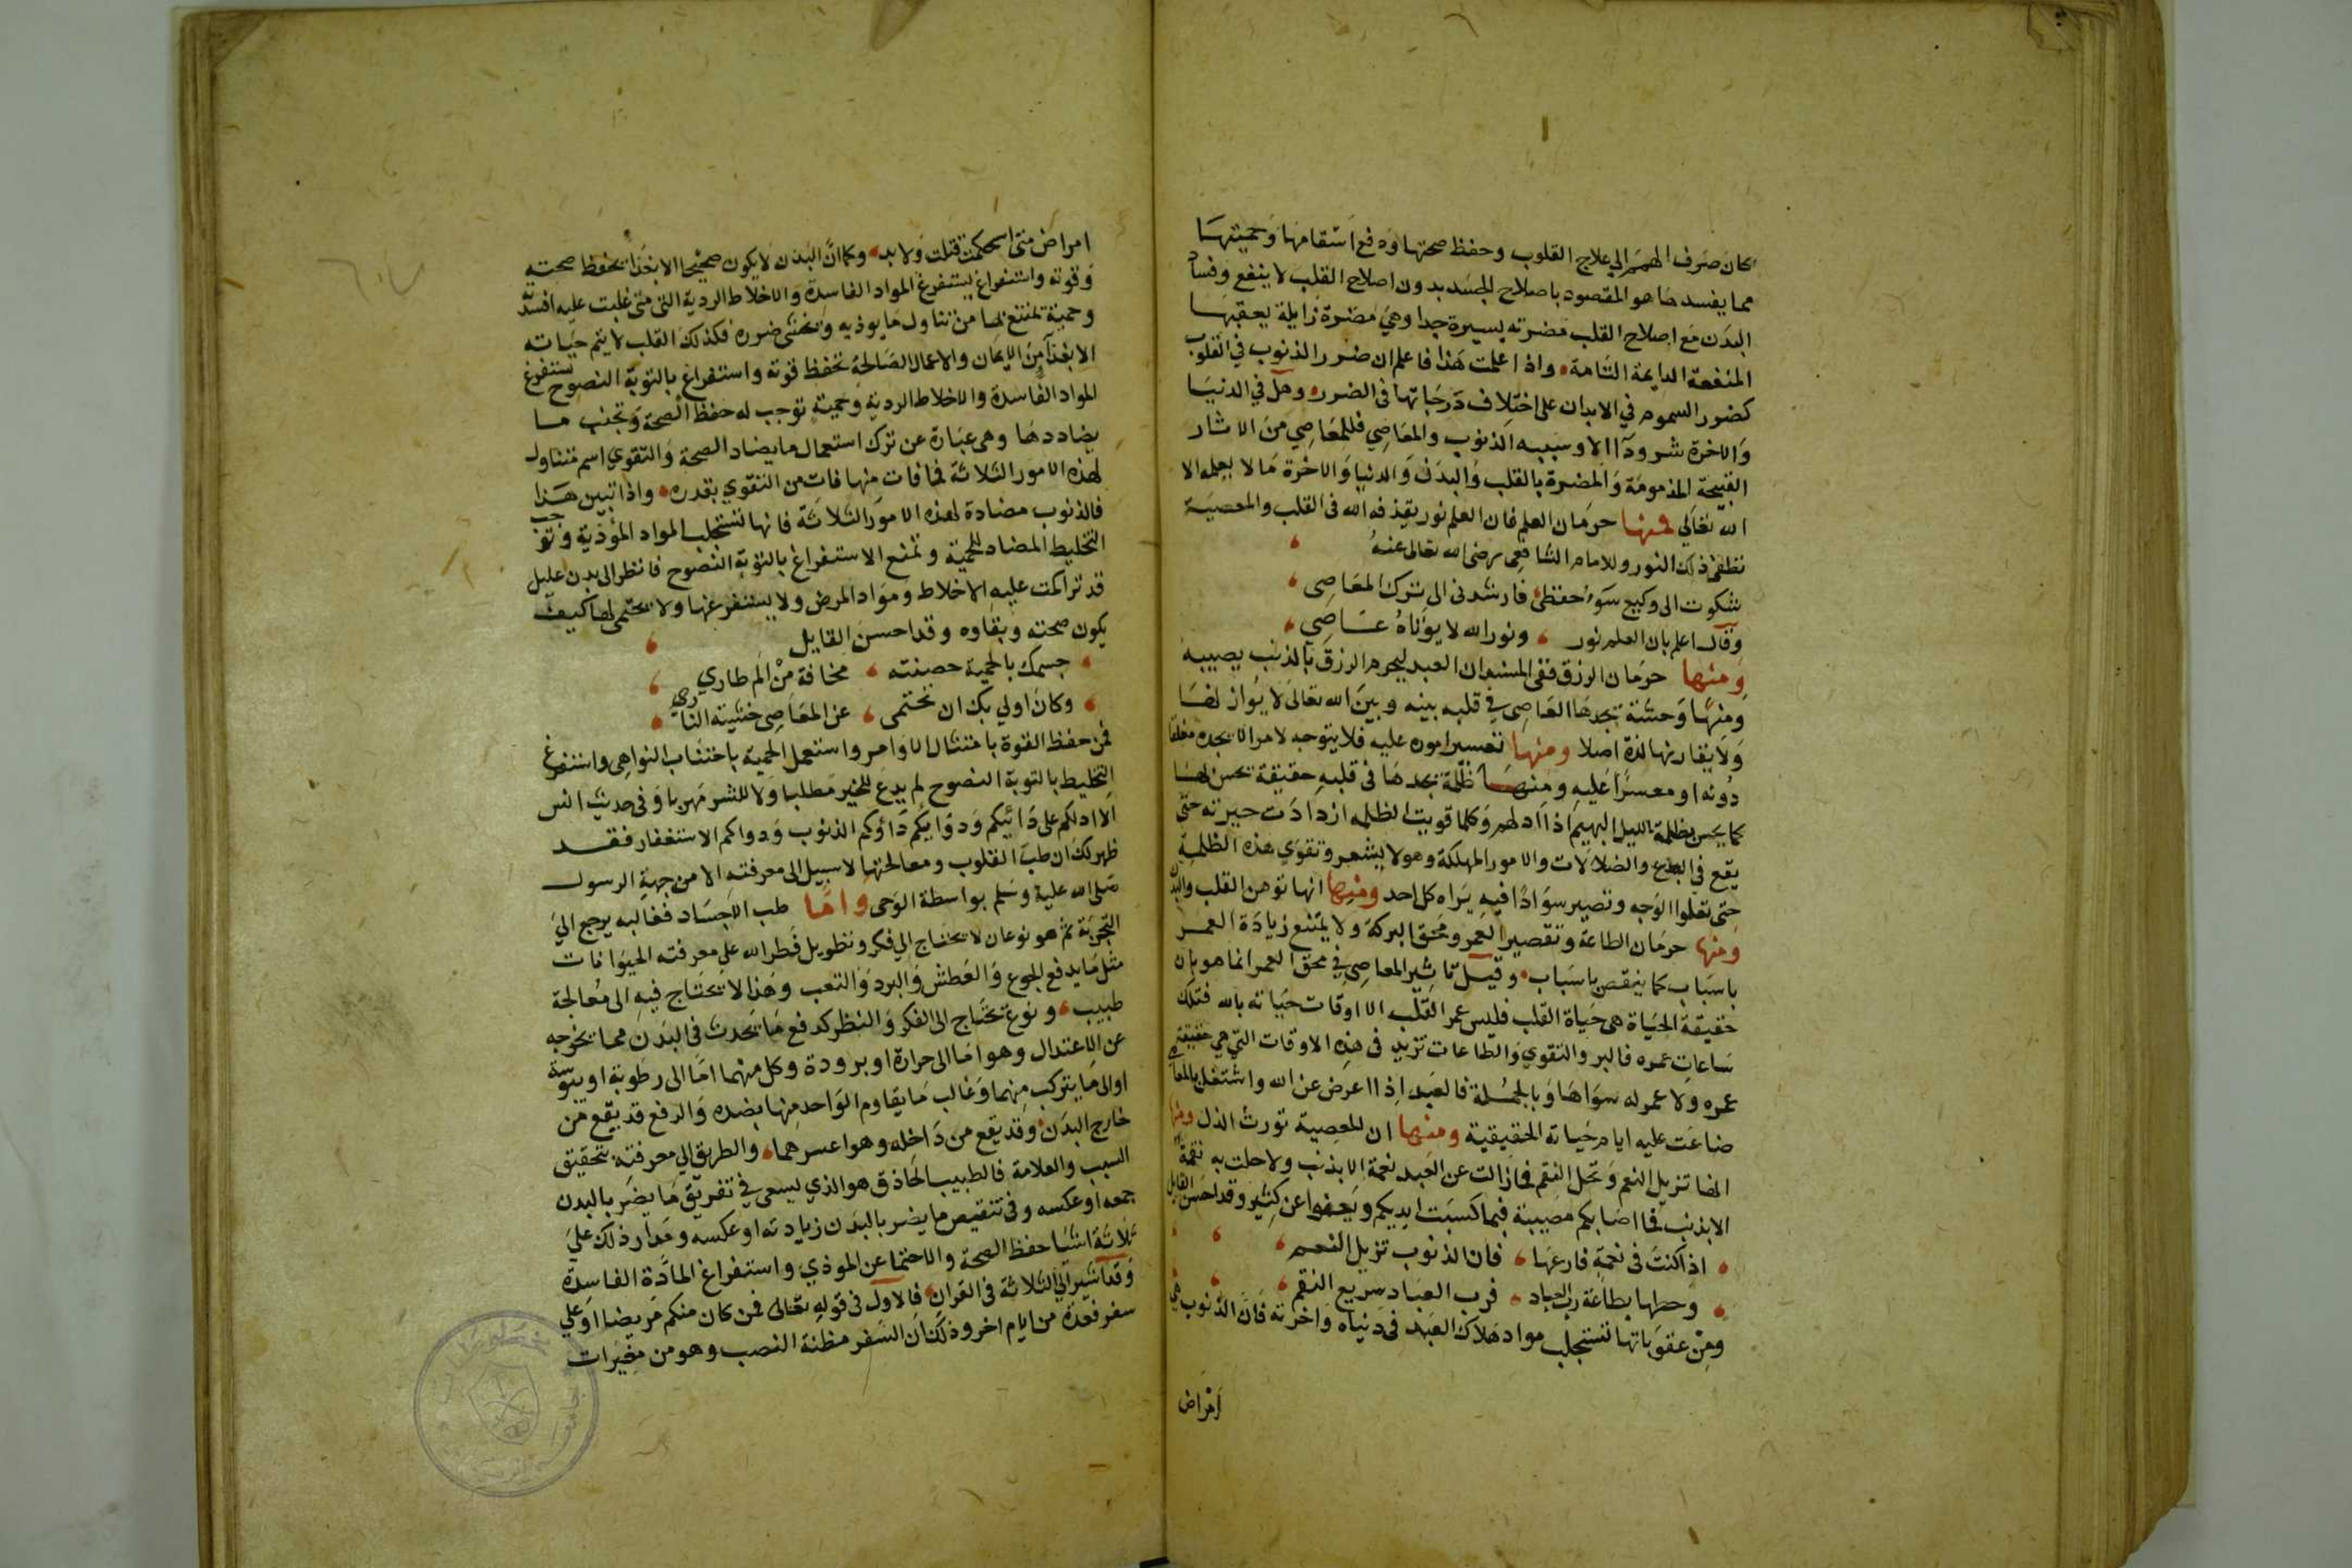 كان صرف الهمم الي علاج القلوب وحفظ صحتها ودفع اسقامها وحميتها
مما يفسدها هو المقصود باصلاح الجسد بدون اصلاح القلب لا ينفع وفساد
البدن مع اصلاح القلب مضرته يسيرة جدا وهي مضرة زايلة يعقبها
المنفعة الدايمة التامة واذا علمت هذا فاعلم ان ضرر الذنوب في القلوب
كضرر السموم في الابدان على اختلاف درجاتها في الضرر وهل في الدنيا
والاخرة شر ودآ الا وسببه الذنوب والمعاصي فللمعاصي من الاثار
القبيحة المذمومة والمضرة بالقلب والبدن والدنيا والاخرة ما لا يعلمه الا
الله تعالي فمنها حرمان العلم فان العلم نور يقذفه الله في القلب والمعصية
تطفئ ذلك النور وللامام الشافعي رضى الله تعالى عنه
شكوت الى وكيع سوء حفظي فارشدني الى ترك المعاصي
وقال اعلم بان العلم نور ونور الله لا يؤتاه عاصي
ومنها حرمان الرزق ففي المسند ان العبد ليحرم الرزق بالذنب يصيبه
ومنها وحشة يجدها العاصي في قلبه بينه وبين الله تعالى لا يوازنها
ولا يقاربها لذة اصلا ومنها تعسير اموره عليه فلا يتوجه لامر الا يجده مغلقا
دونه او معسرا عليه ومنها ظلمة يجدها في قلبه حقيقة يحس بها
كما يحس بظلمة الليل البهيم اذا ادلهم وكلما قويت الظلمه ازدادت حيرته حتي
يقع في البدع والضلالات والامور المهلكة وهو لا يشعر وتقوي هذه الظلمة
حتى تعلوا الوجه وتصير سوادا فيه يراه كل احد ومنها انها توهن القلب والبدن
ومنها حرمان الطاعة وتقصير العمر ومحق البركة ولا يمتنع زيادة العمر
باسباب كما ينقص باسباب وقيل تاثير المعاصي في محق العمر انما هو بان
حقيقة الحياة هى حياة القلب فليس عمر القلب الا اوقات حياته بالله فتلك
ساعات عمره فالبر والتقوي والطاعات تزيد في هذه الاوقات التي هي حقيقة
عمره ولا عمر له سواها وبالجملة فالعبد اذا اعرض عن الله واشتغل بالمعاصي
ضاعت عليه ايام حياته الحقيقية ومنها ان المعصية تورث الذل ومنها
انها تزيل النعم وتحل النقم فما زالت عن العبد نعمة الا بذنب ولا حلت به نقمة
الا بذنب فما اصابكم مصيبة فبما كسبت ايديكم ويعفوا عن كثير وقد احسن القايل
اذا كنت في نعمة فارعها فان الذنوب تزيل النعم
وحطها بطاعة رب العباد فرب العباد سريع النقم
ومن عقوباتها تستجلب مواد هلاك العبد في دنياه واخرته فان الذنوب هي
امراض
امراض متى استحكمت قتلت ولا بد وكما ان البدن لا يكون صحيحا الا بغذا يحفظ صحته
وقوته واستفراغ يستفرغ المواد الفاسدة والاخلاط الردية التي متى غلبت عليه افسدته
وحمية تمتنع بها من تناول ما يوذيه ويخشى ضرره فكذلك القلب لا يتم حياته
الا بغذآ من الايمان والاعمال الصالحة تحفظ قوته واستفراغ بالتوبة النصوح تستفرغ
المواد الفاسدة والاخلاط الردية وحمية توجب له حفظ الصحة وتجنب ما
يضاددها وهى عبارة عن ترك استعمال ما يضاد الصحة والتقوي اسم متناول
لهذه الامور الثلاثة فما فات منها فات من التقوي بقدره واذا تبين هذا
فالذنوب مضادة لهذه الامور الثلاثة فانها تستجلب المواد المؤذية وتوجب
التخليط المضاد للحمية وتمنع الاستفراغ بالتوبة النصوح فانظر الى بدن عليل
قد تراكمت عليه الاخلاط ومواد المرض ولا يستفرغها ولا يحتمى لها كيف
يكون صحته وبقاوه وقد احسن القايل
جسمك بالحمية حصنته مخافة من الم طاري
وكان اولي بك ان تحتمى عن المعاصي خشية الناري
فمن حفظ القوة بامتثال الاوامر واستعمل الحمية باجتناب النواهي واستفرغ
التخليط بالتوبة النصوح لم يدع للخير مطلبا ولا للشر مهربا وفي حديث انس
الا ادلكم على دائكم ودوايكم داؤكم الذنوب ودواكم الاستغفار فقد
ظهر لك ان طب القلوب ومعالجتها لا سبيل الى معرفته الا من جهة الرسول
صلى الله عليه وسلم بواسطة الوحى واما طب الاجساد فغالبه يرجع الي
التجربة ثم هو نوعان لا يحتاج الي فكر وتطويل فطر الله علي معرفته الحيوانات
مثل ما يدفع الجوع والعطش والبرد والتعب وهذا لا يحتاج فيه الى معالجة
طبيب ونوع يحتاج الى الفكر والنظر كدفع ما يحدث في البدن مما يخرجه
عن الاعتدال وهو اما الى حرارة او برودة وكل منهما اما الى رطوبة او يبوسة
او الى ما يتركب منهما وغالب ما يقاوم الواحد منها بضده والرفع قد يقع من
خارج البدن وقد يقع من داخله وهو اعسرهما والطريق الي معرفته بتحقيق
السبب والعلامة فالطبيب الحاذق هو الذي يسعى في تفريق ما يضر بالبدن
جمعه او عكسه وفي تنقيص ما يضر بالبدن زيادته او عكسه ومدار ذلك علي
ثلاثة اشيا حفظ الصحة والاحتما عن الموذي واستفراغ المادة الفاسدة
وقد اشير الي الثلاثة في القران فالاول في قوله تعالى فمن كان منكم مريضا او علي
سفر فعدة من ايام اخر وذلك ان السفر مظنة النصب وهو من مغيرات